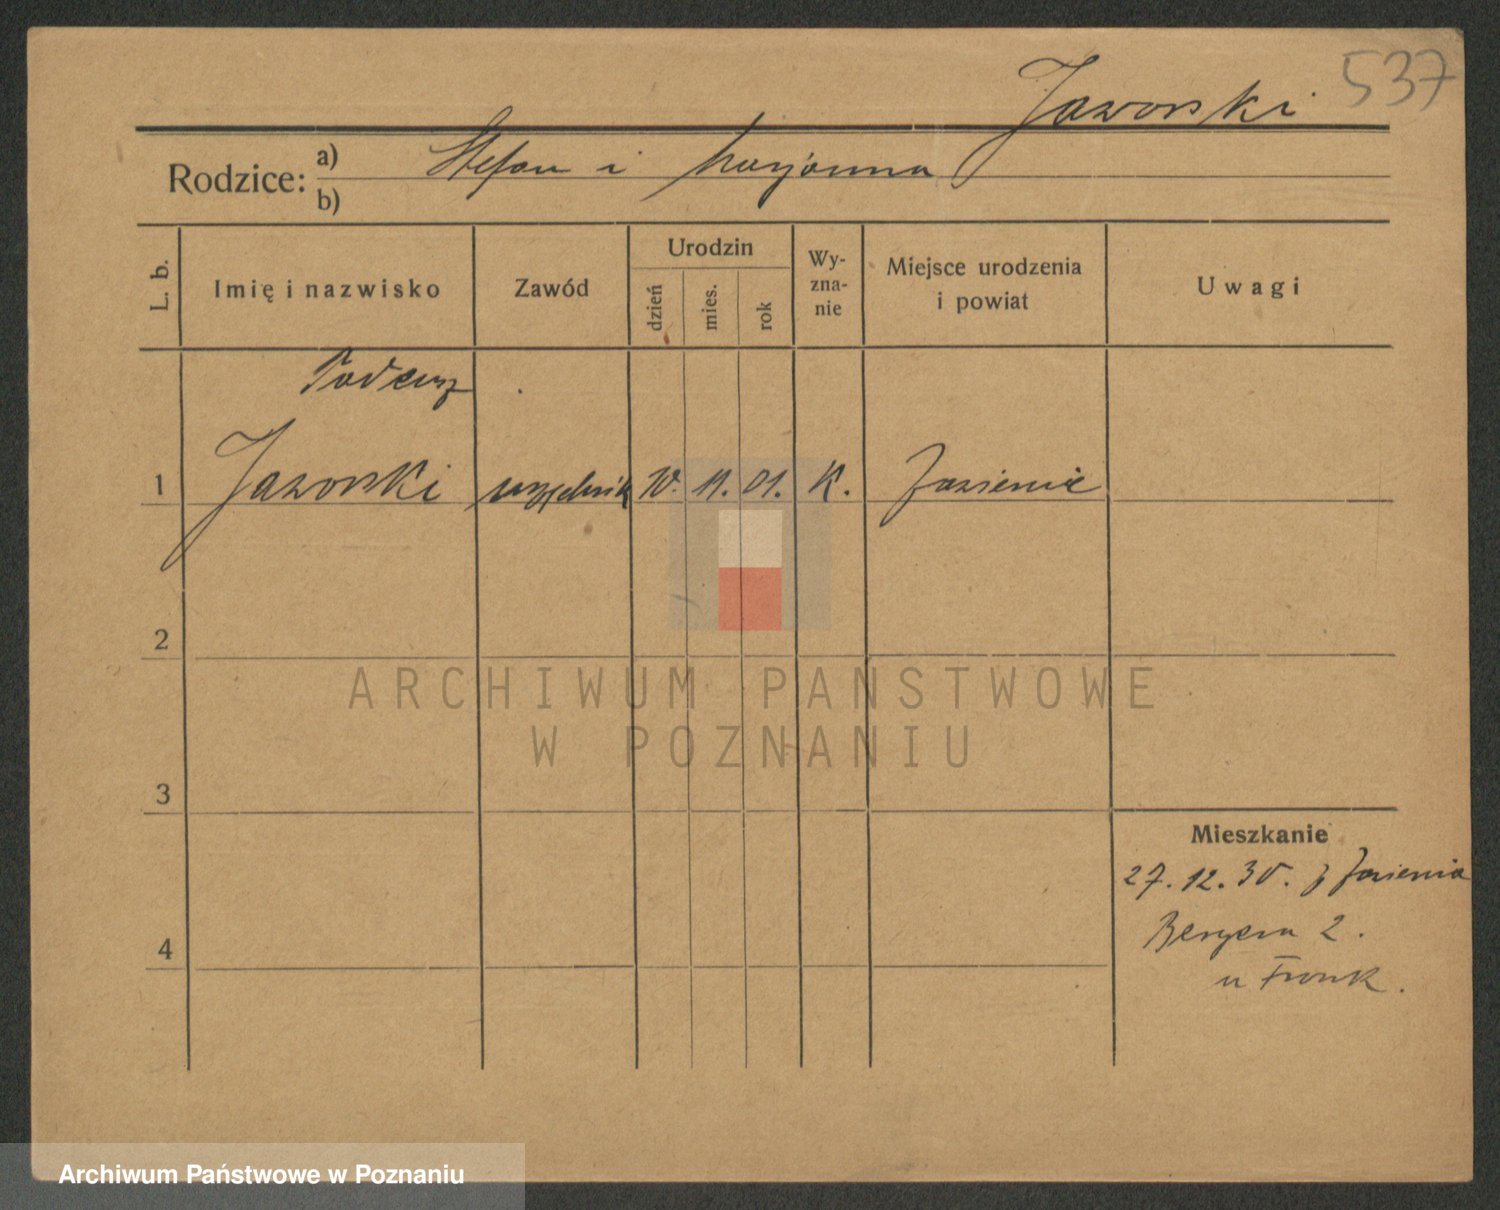 537
Jaworski
Rodzice: a) Stefan i Marjanna
b)
L. b.
Imię i nazwisko
Zawód
Urodzin
dzień
mies.
rok
Wy-
zna-
nie
Miejsce urodzenia
i powiat
Uwagi
Tadeusz
1 Jaworski urzędnik 10. 11. 01. K. Jasienie
2
3
4
Mieszkanie
27. 12. 30. z Jasienia
Bergera 2.
u Fronk.
ARCHIWUM PAŃSTWOWE
W POZNANIU
Archiwum Państwowe w Poznaniu